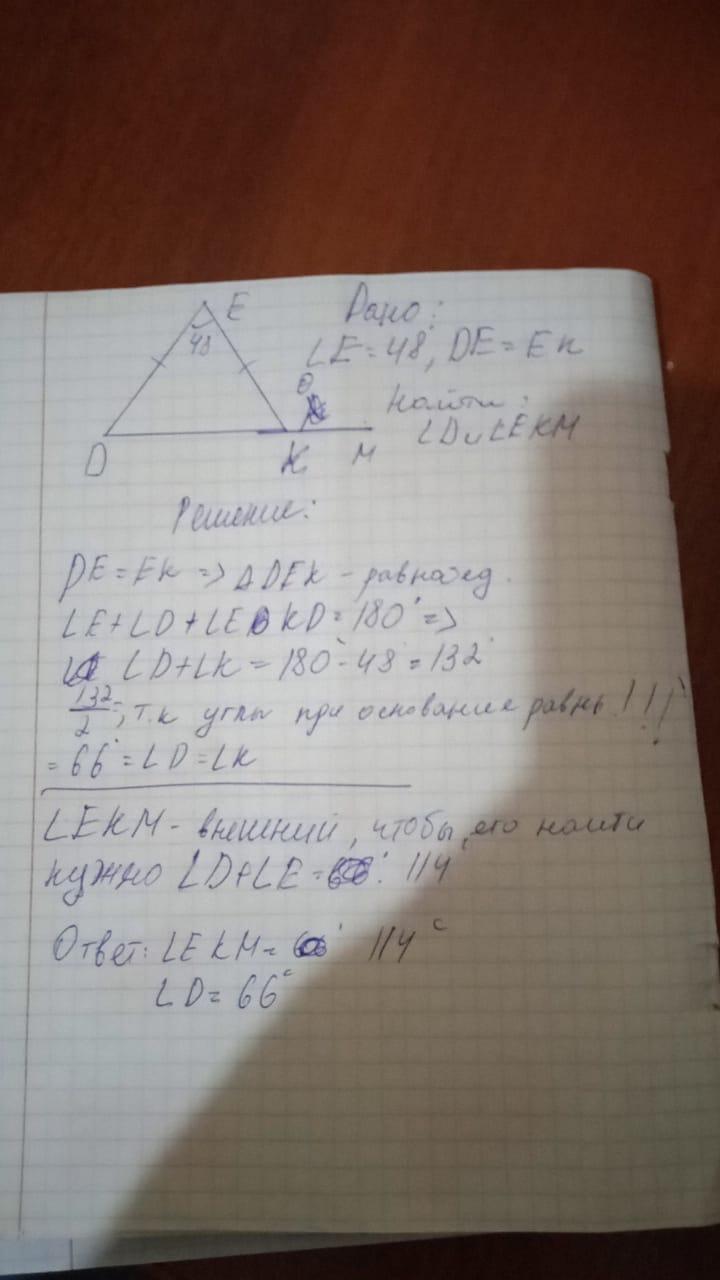 E
48
D
K
M
Дано:
∠E = 48, DE = EK
Найти:
∠D и ∠EKM
Решение:
DE = EK => △DEK - равнобед.
∠E + ∠D + ∠EKD = 180° =>
∠D + ∠K = 180° - 48° = 132°
132/2 =, т.к углы при основание равны!!!
= 66° = ∠D = ∠K
∠EKM - внешний, чтобы его найти
нужно ∠D + ∠E = 114
Ответ: ∠EKM = 114°
∠D = 66°